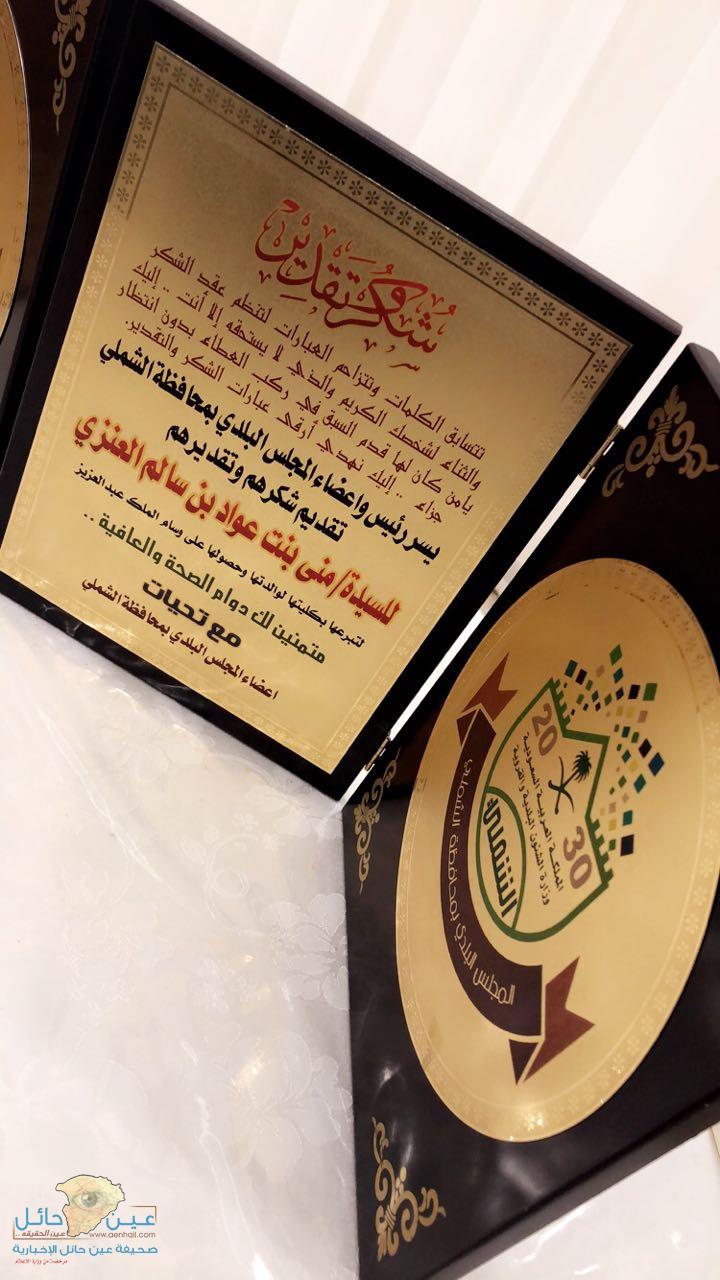 شكر وتقدير
تتسابق الكلمات وتتزاحم العبارات لتنظم عقد الشكر
والثناء لشخصك الكريم والذي لا يستحقه إلا أنت .. إليك
يامن كان لها قدم السبق في ركب العطاء بدون انتظار
جزاء .. إليك نهدي أرقى عبارات الشكر والتقدير.
يسر رئيس واعضاء المجلس البلدي بمحافظة الشملي
تقديم شكرهم وتقديرهم
للسيدة/منى بنت عواد بن سالم العنزي
لتبرعها بكليتها لوالدتها وحصولها على وسام الملك عبدالعزيز
متمنين لك دوام الصحة والعافية ..
مع تحيات
اعضاء المجلس البلدي بمحافظة الشملي
20 30
المملكة العربية السعودية
وزارة الشئون البلدية والقروية
الشملي
المجلس البلدي بمحافظة الشملي
عين حائل
عين الحقيقة ..
www.aenhail.com
صحيفة عين حائل الإخبارية
مرخصة من وزارة الإعلام